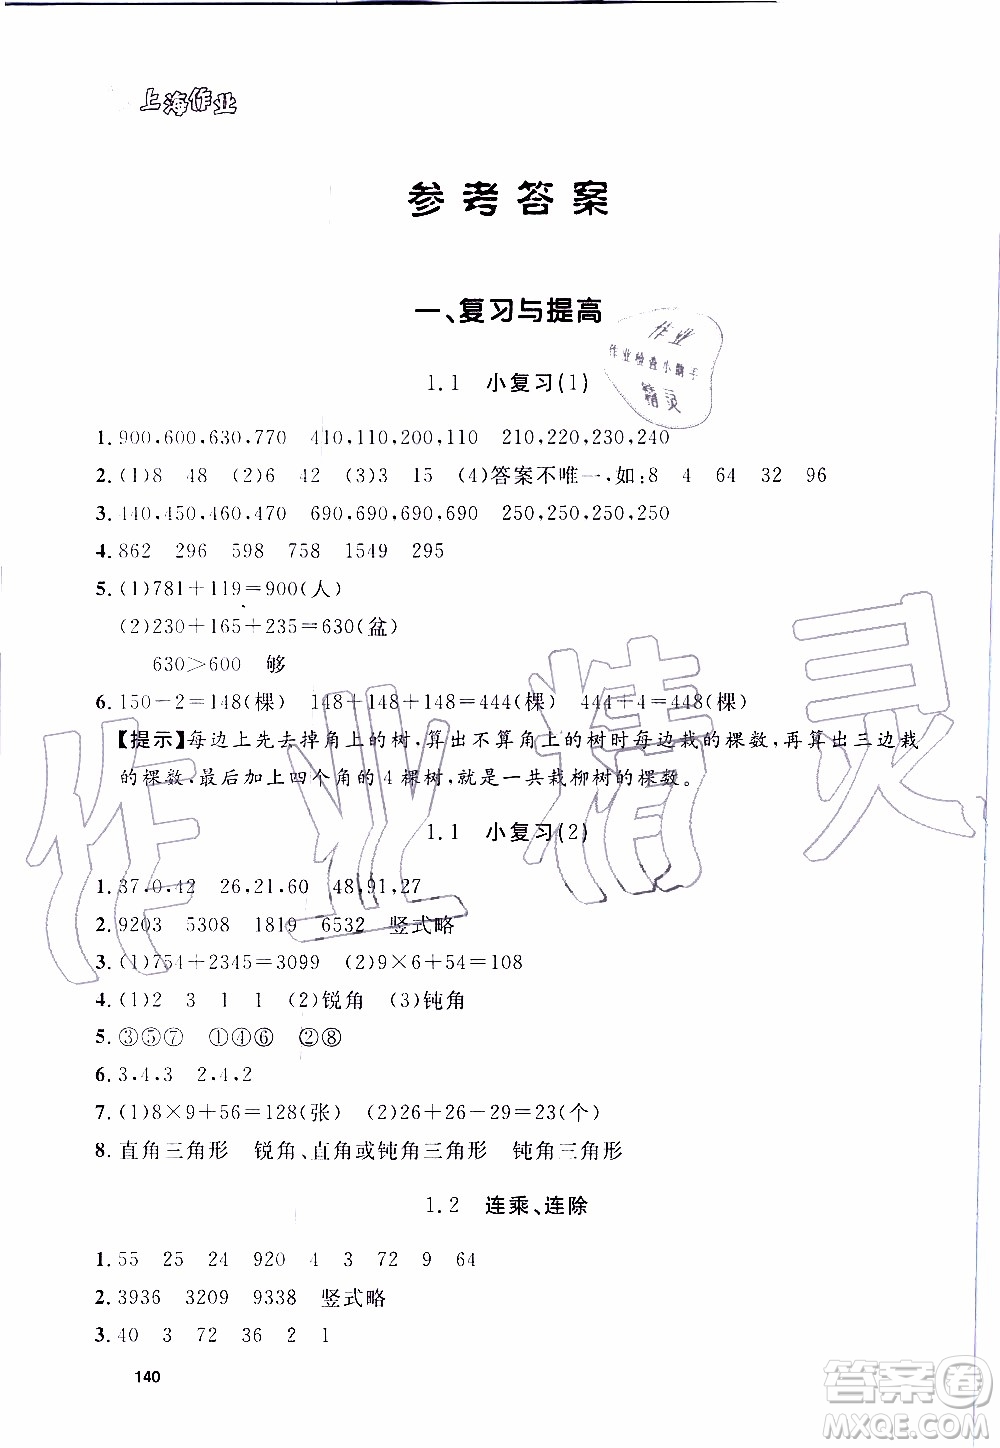 上海作业
参考答案
一、复习与提高
作业
作业检查小助手
精灵
1.1 小复习(1)
1. 900,600,630,770 410,110,200,110 210,220,230,240
2. (1)8 48 (2)6 42 (3)3 15 (4)答案不唯一,如:8 4 64 32 96
3. 440,450,460,470 690,690,690,690 250,250,250,250
4. 862 296 598 758 1549 295
5. (1)781+119=900(人)
(2)230+165+235=630(盆)
630>600 够
6. 150-2=148(棵) 148+148+148=444(棵) 444+4=448(棵)
【提示】每边上先去掉角上的树,算出不算角上的树时每边栽的棵数,再算出三边栽
的棵数,最后加上四个角的4棵树,就是一共栽柳树的棵数。
1.1 小复习(2)
1. 37,0,42 26,21,60 48,91,27
2. 9203 5308 1819 6532 竖式略
3. (1)754+2345=3099 (2)9×6+54=108
4. (1)2 3 1 1 (2)锐角 (3)钝角
5. ③⑤⑦ ①④⑥ ②⑧
6. 3,4,3 2,4,2
7. (1)8×9+56=128(张) (2)26+26-29=23(个)
8. 直角三角形 锐角、直角或钝角三角形 钝角三角形
1.2 连乘、连除
1. 55 25 24 920 4 3 72 9 64
2. 3936 3209 9338 竖式略
3. 40 3 72 36 2 1
140
作业精灵
答案圈
MXQE.COM